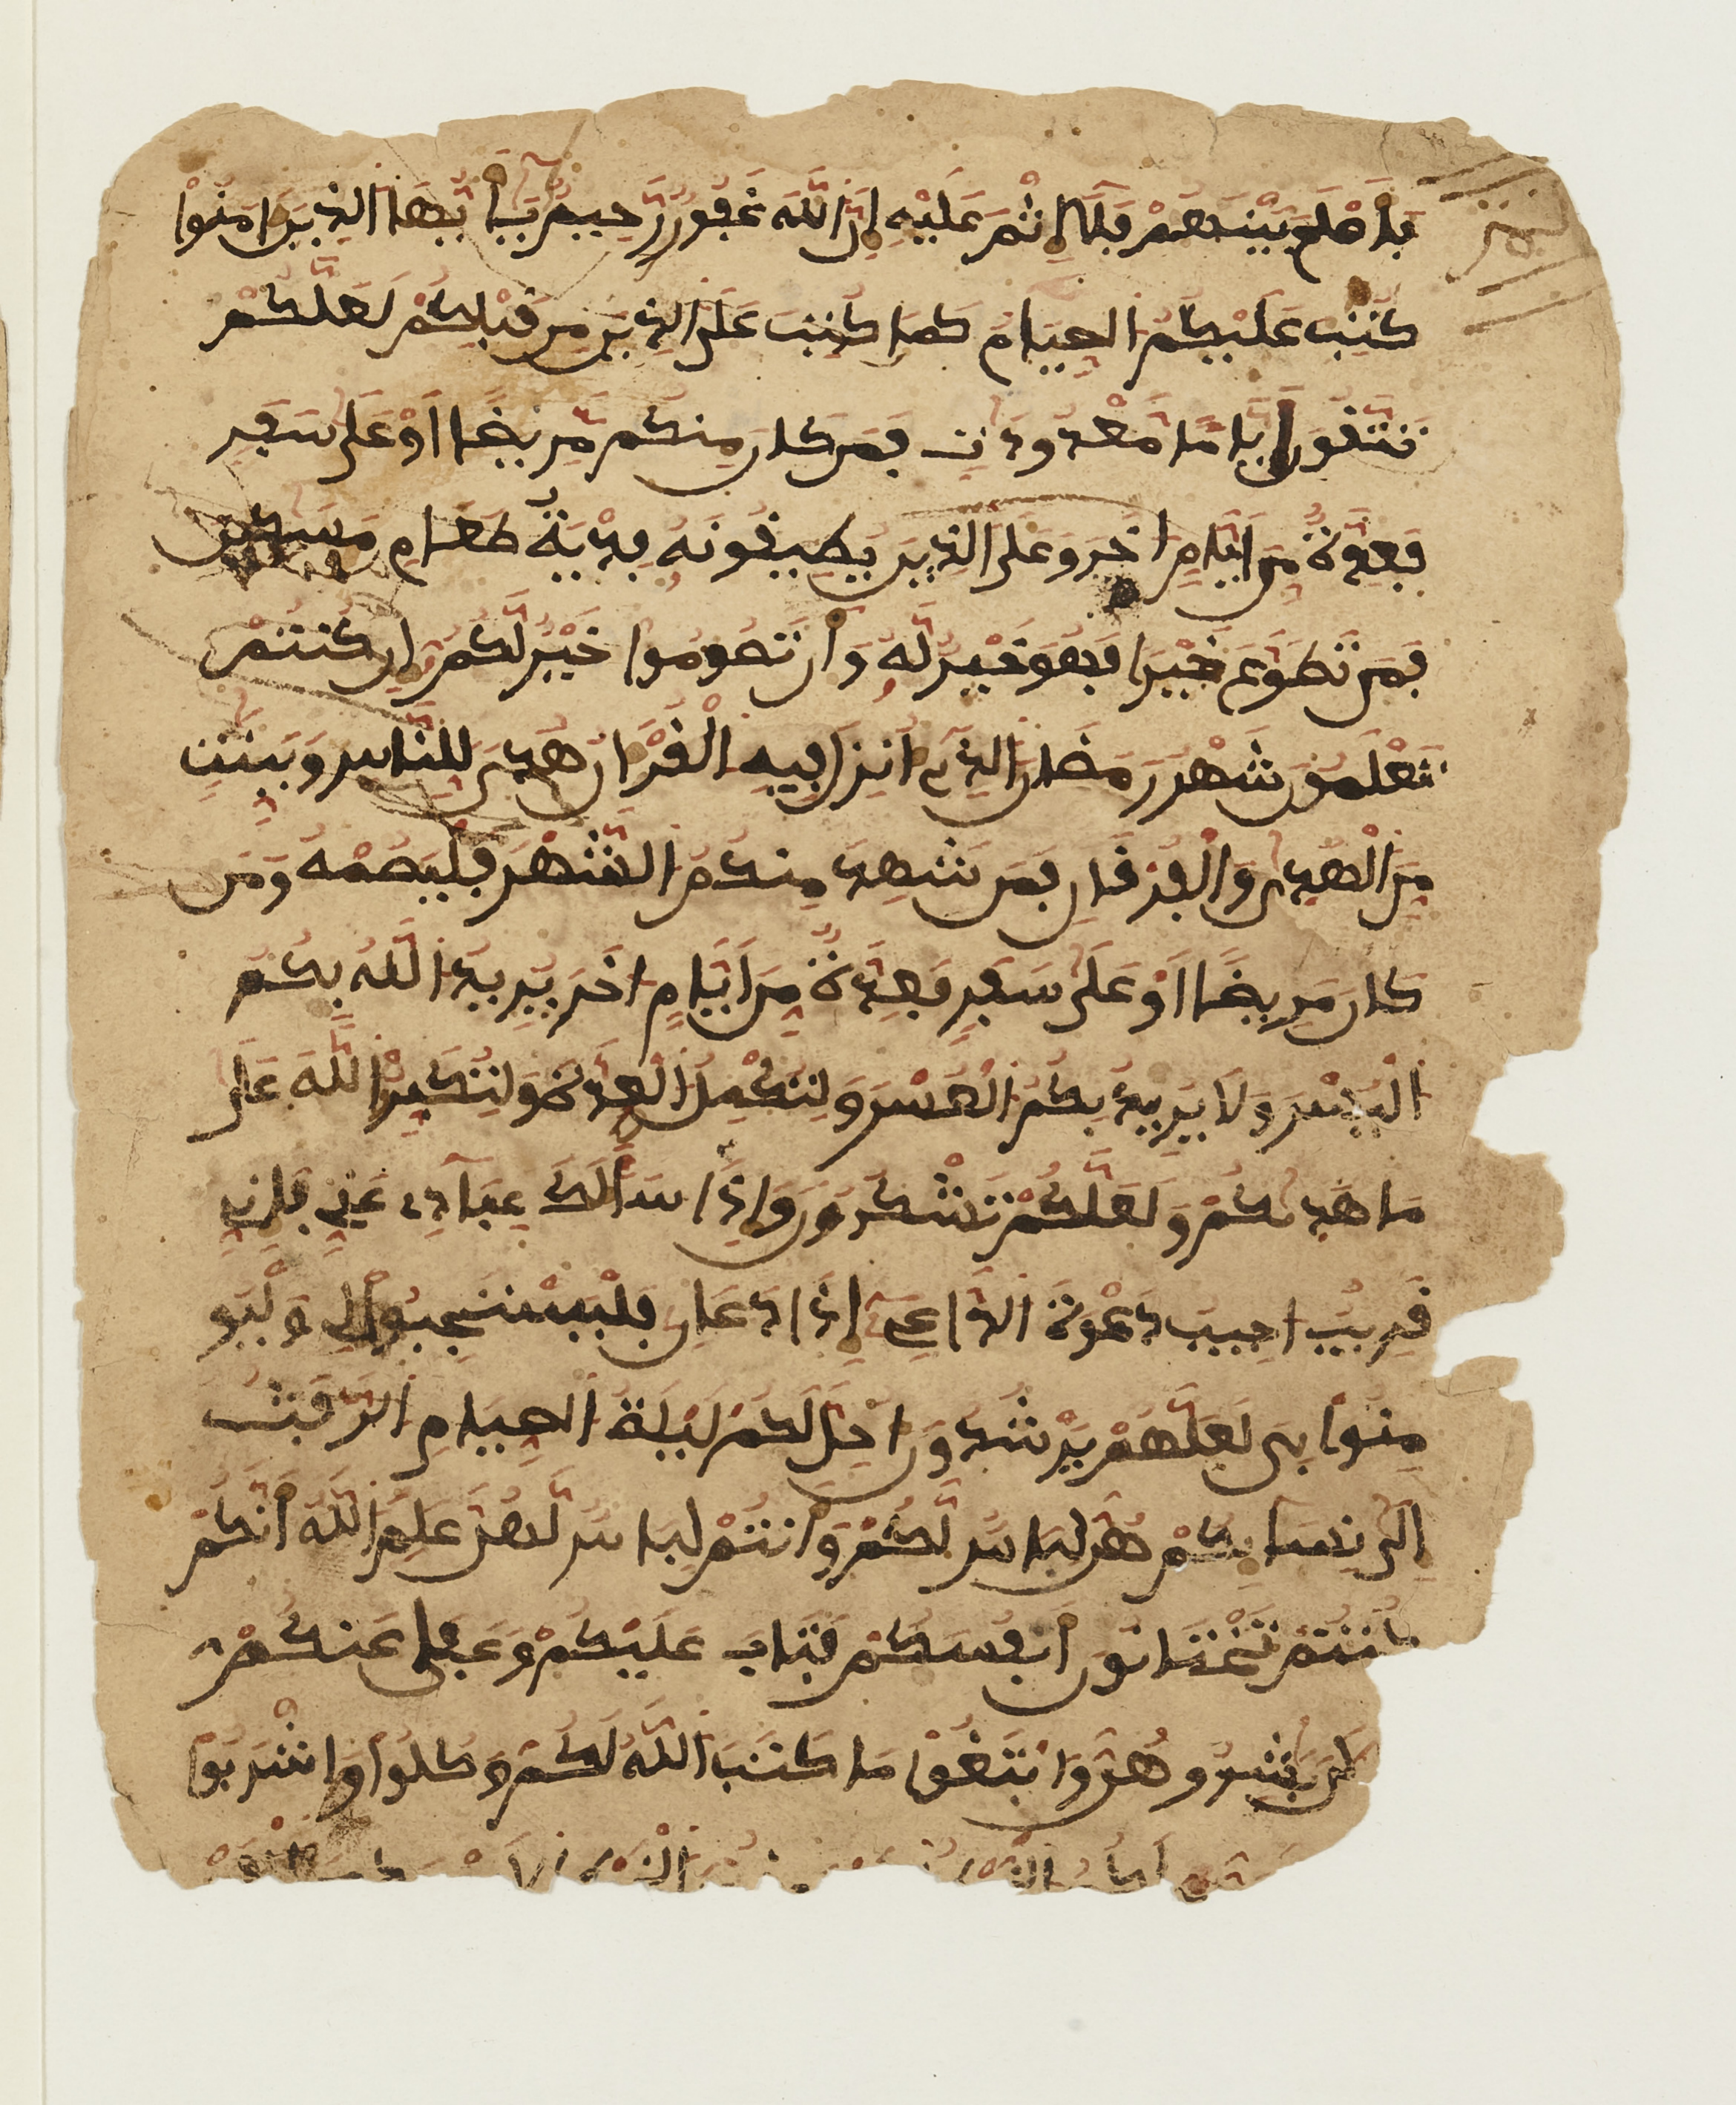 فَأَصْلَحَ بَيْنَهُمْ فَلَآ إِثْمَ عَلَيْهِ إِنَّ اَللَّهَ غَفُورٌ رَّحِيمٌ يَٰٓأَيُّهَا اَلذِينَ ءَامَنُواْ
كُتِبَ عَلَيْكُمُ اُلصِّيَامُ كَمَا كُتِبَ عَلَى اَلذِينَ مِن قَبْلِكُمْ لَعَلَّكُمْ
تَتَّقُونَ أَيَّامًا مَّعْدُودَٰتٍ فَمَن كَانَ مِنكُم مَّرِيضًا أَوْ عَلَىٰ سَفَرٍ
فَعِدَّةٌ مِّنَ اَيَّامٍ اُخَرَ وَعَلَى اَلذِينَ يُطِيقُونَهُ فِدْيَةُ طَعَامِ مَسَٰكِينَ
فَمَن تَطَوَّعَ خَيْرًا فَهُوَ خَيْرٌ لَّهُ وَأَن تَصُومُواْ خَيْرٌ لَّكُمُ إِن كُنتُمْ
تَعْلَمُونَ شَهْرُ رَمَضَانَ اَلذِىٓ أُنزِلَ فِيهِ اِلْقُرْءَانُ هُدًى لِّلنَّاسِ وَبَيِّنَٰتٍ
مِّنَ اَلْهُدَىٰ وَالْفُرْقَانِ فَمَن شَهِدَ مِنكُمُ اُلشَّهْرَ فَلْيَصُمْهُ وَمَن
كَانَ مَرِيضًا أَوْ عَلَىٰ سَفَرٍ فَعِدَّةٌ مِّنَ اَيَّامٍ اُخَرَ يُرِيدُ اُللَّهُ بِكُمُ
اُلْيُسْرَ وَلَا يُرِيدُ بِكُمُ اُلْعُسْرَ وَلِتُكْمِلُواْ اُلْعِدَّةَ وَلِتُكَبِّرُواْ اُللَّهَ عَلَىٰ
مَا هَدَىٰكُمْ وَلَعَلَّكُمْ تَشْكُرُونَ وَإِذَا سَأَلَكَ عِبَادِى عَنِّى فَإِنِّى
قَرِيبٌ اُجِيبُ دَعْوَةَ اَلدَّاعِۦٓ إِذَا دَعَانِ فَلْيَسْتَجِيبُواْ لِى وَلْيُو
مِنُواْ بِى لَعَلَّهُمْ يَرْشُدُونَ اُحِلَّ لَكُمْ لَيْلَةَ اَلصِّيَامِ اِلرَّفَثُ
إِلَىٰ نِسَآئِكُمْ هُنَّ لِبَاسٌ لَّكُمْ وَأَنتُمْ لِبَاسٌ لَّهُنَّ عَلِمَ اَللَّهُ أَنَّكُمْ
كُنتُمْ تَخْتَانُونَ أَنفُسَكُمْ فَتَابَ عَلَيْكُمْ وَعَفَا عَنكُمْ
بَٰشِرُوهُنَّ وَابْتَغُواْ مَا كَتَبَ اَللَّهُ لَكُمْ وَكُلُواْ وَاشْرَبُواْ